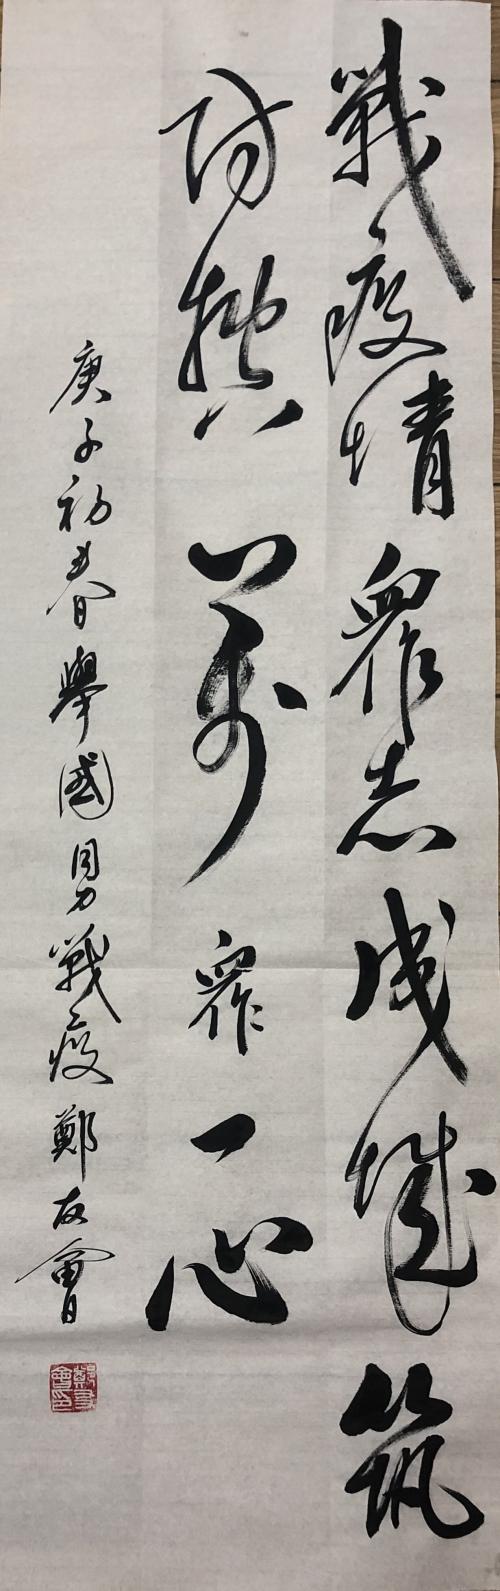 戰疫情眾志成城筑
防控萬眾一心
庚子初春舉國同力戰疫鄭友會
鄭友會印